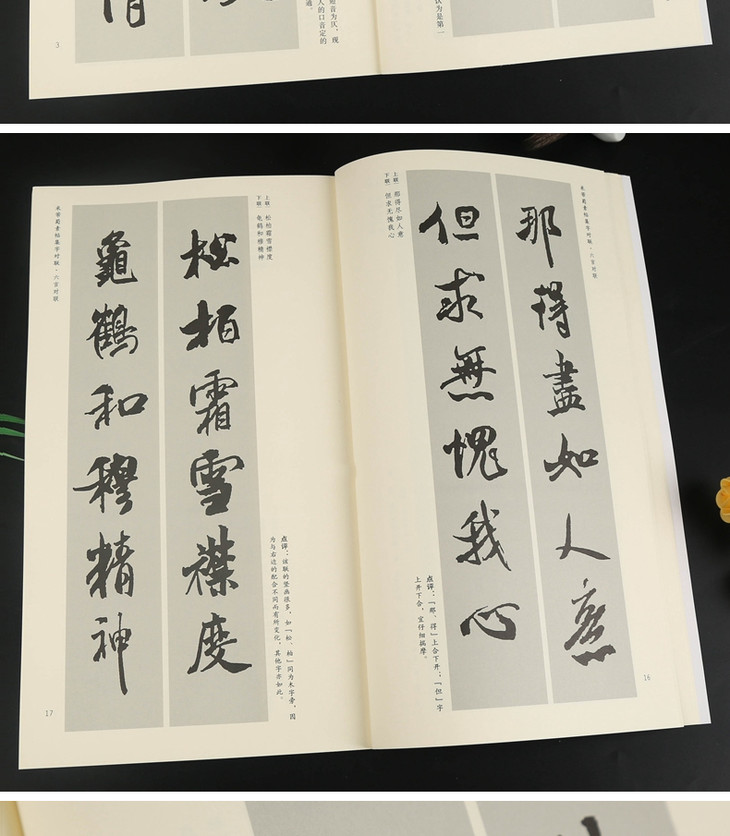 认为是第一
人的口音定的
3
米芾蜀素帖集字对联·六言对联
那得盡如人意
但求無愧我心
上联 那得尽如人意
下联 但求无愧我心
点评:「那、得」上合下开;「但」字
上开下合,宜仔细揣摩。
16
松柏霜雪襟度
龜鶴和穆精神
上联 松柏霜雪襟度
下联 龟鹤和穆精神
点评:该联的竖画很多,如「松、柏」同为木字旁,因
为与右边的配合不同而有所变化,其他字亦如此。
米芾蜀素帖集字对联·六言对联
17